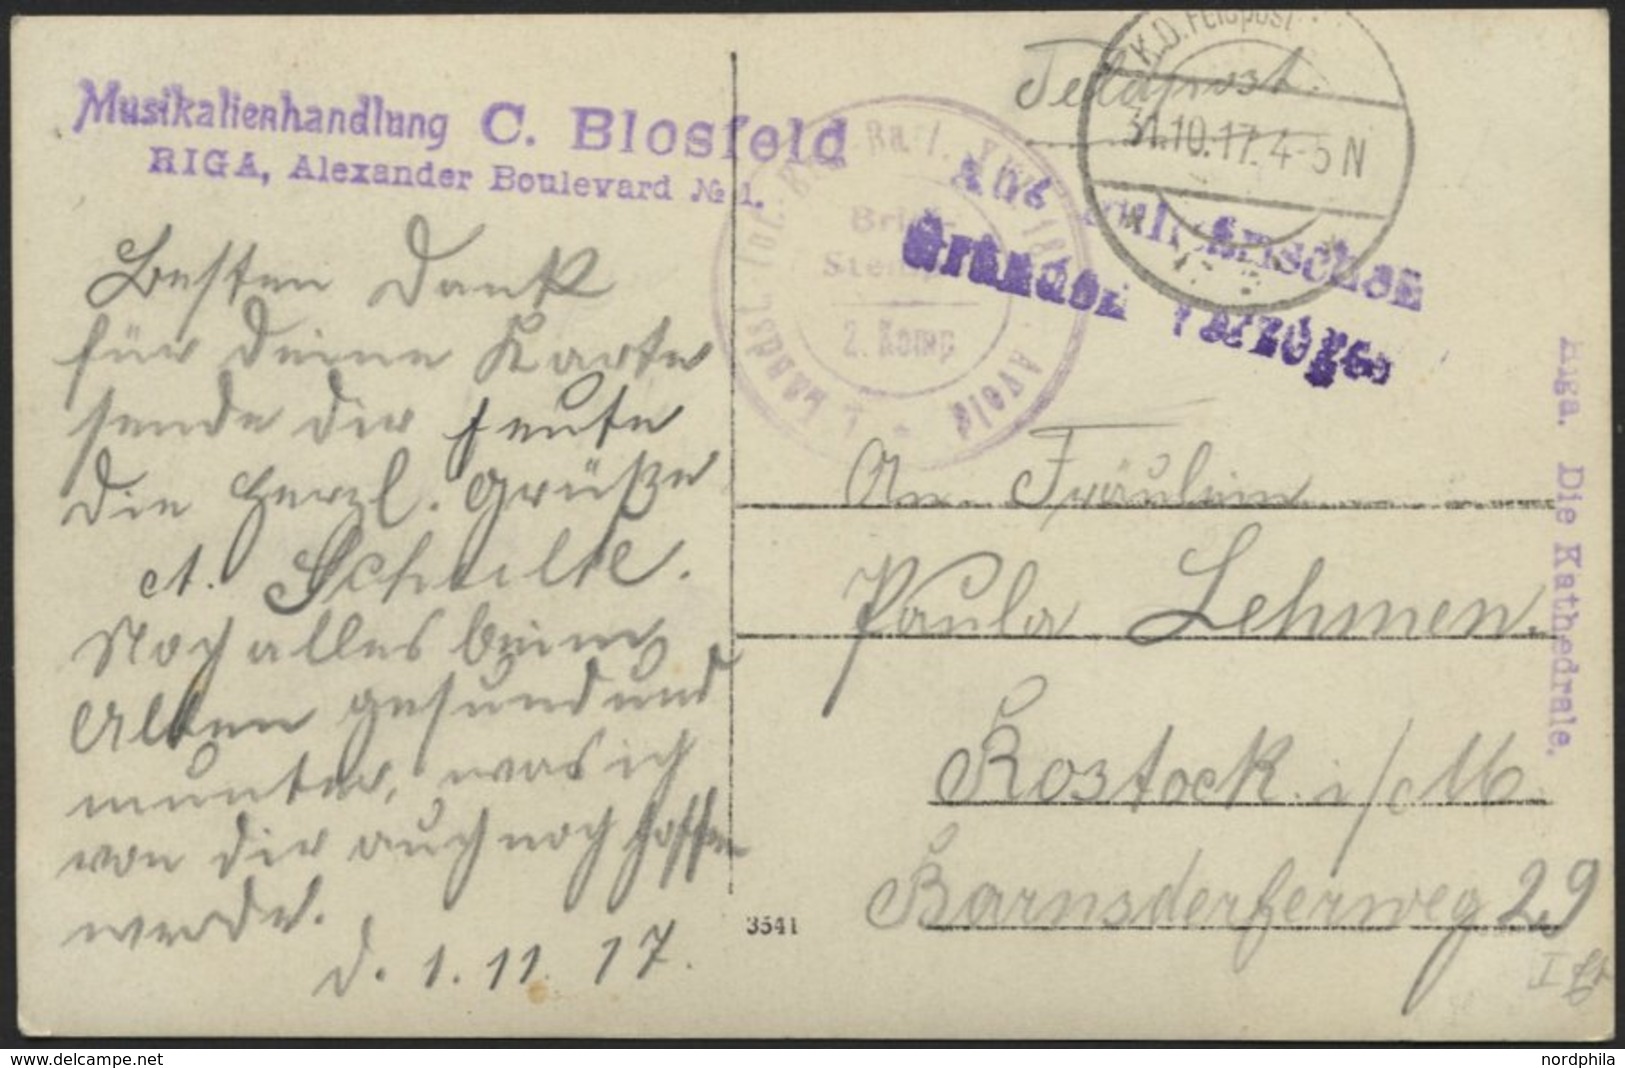 Musikalienhandlung C. Blosfeld
RIGA, Alexander Boulevard № 1.
Besten Dank
für deine Karte
sende dir heute
die herzl. Grüße
A. Schulte.
Noch alles beim
Alten gesund und
munter, was ich
von dir auch noch hoffen
werde.
d. 1. 11. 17.
3541
Feldpost.
K.D. Feldpost
31.10.17. 4-5 N
Aus militärischen
Gründen verzögert
Brief-
Stempel
2. Komp
An Fräulein
Paula Lehmen.
Rostock i/M
Barnsdorferweg 29
I Et
Riga. Die Kathedrale.
www.delcampe.net
nordphila